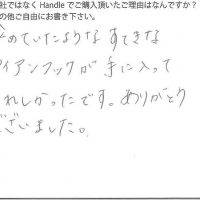 社ではなく Handle でご購入頂いたご理由はなんですか？
の他ご自由にお書き下さい。
めていたような すてきな
アイアンフックが 手に入って
れしかったです。ありがとう
ございました。